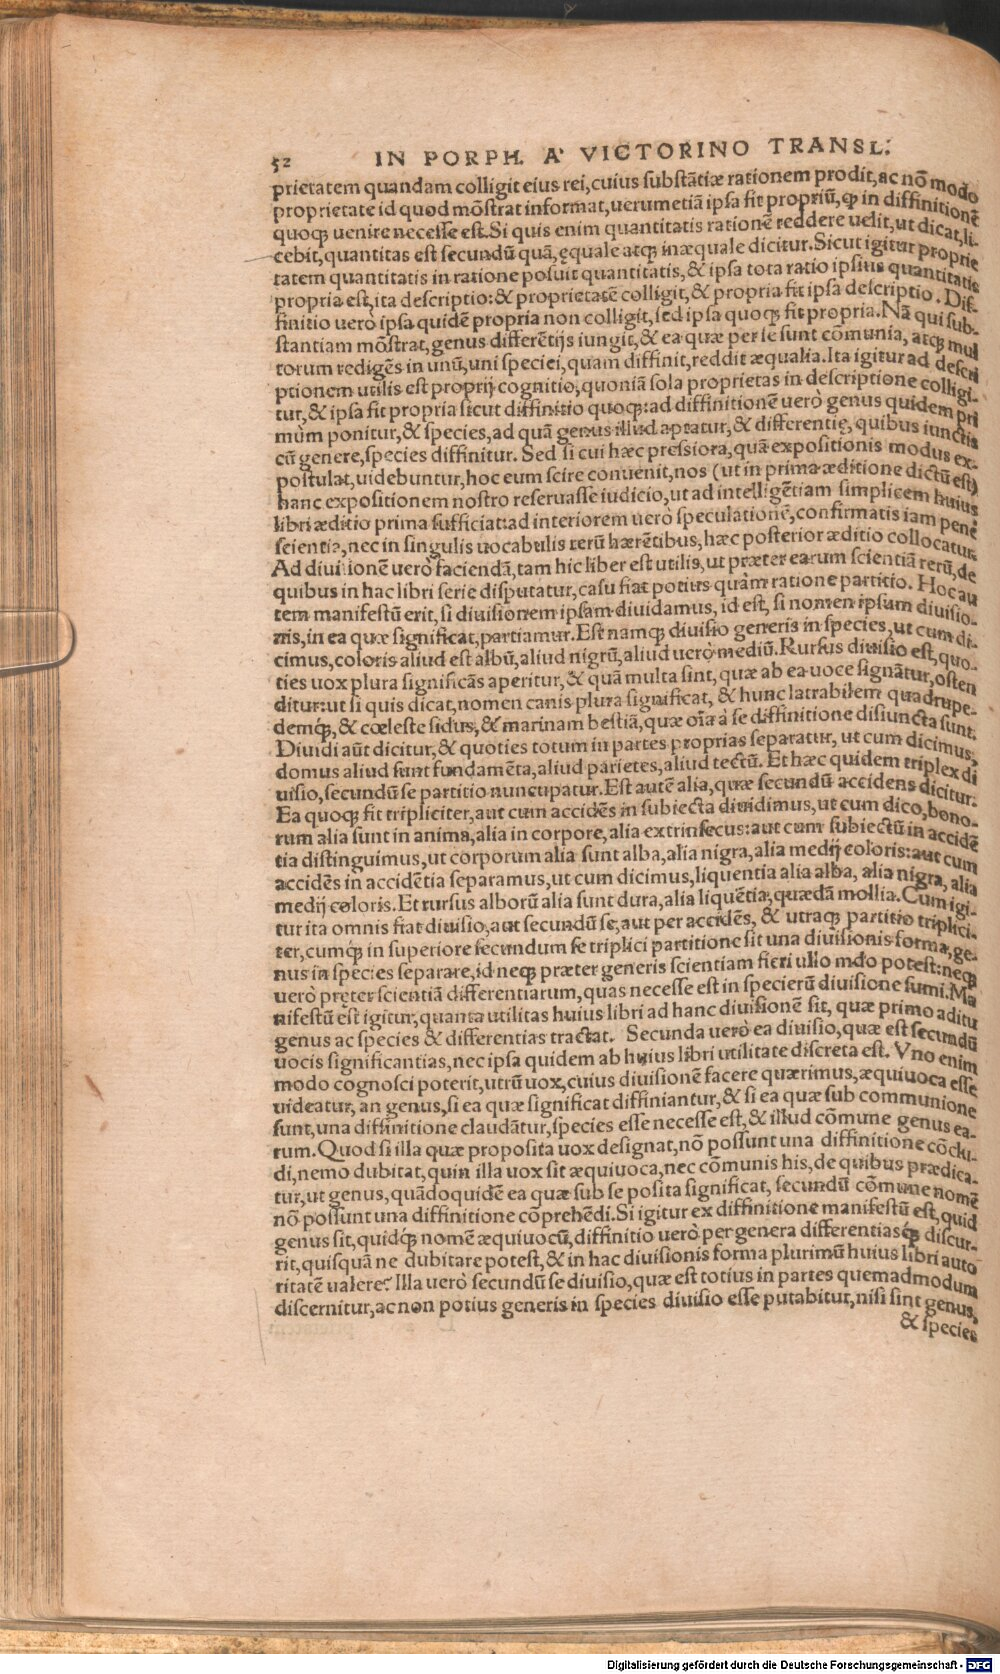 52 IN PORPH. A' VICTORINO TRANSL:
prietatem quandam colligit eius rei,cuius substãtiæ rationem prodit,ac nõ modo
proprietate id quod mõstrat informat,uerumetiã ipsa fit propriũ,ꝙ in diffinitionẽ
quoqꝫ uenire necesse est.Si quis enim quantitatis rationẽ reddere uelit,ut dicat,li-
cebit,quantitas est secundũ quã,ęquale atqꝫ inæquale dicitur.Sicut igitur proprie
tatem quantitatis in ratione posuit quantitatis,& ipsa tota ratio ipsius quantitatis
propria est,ita descriptio:& proprietatẽ colligit,& propria fit ipsa descriptio. Dif-
finitio uerò ipsa quidẽ propria non colligit,sed ipsa quoqꝫ fit propria.Nã qui sub-
stantiam mõstrat,genus differẽtijs iungit,& ea quæ per se sunt cõmunia, atqꝫ mul
torum redigẽs in unũ,uni speciei,quam diffinit,reddit æqualia.Ita igitur ad descri
ptionem utilis est proprij cognitio,quoniã sola proprietas in descriptione colligi-
tur,& ipsa fit propria sicut diffinitio quoqꝫ:ad diffinitionẽ uerò genus quidem pri
mùm ponitur,& species,ad quã genus illud aptatur,& differentię, quibus iunctis
cũ genere,species diffinitur. Sed si cui hæc pressiora,quã expositionis modus ex-
postulat,uidebuntur,hoc eum scire conuenit,nos (ut in prima æditione dictũ est)
hanc expositionem nostro reseruasse iudicio,ut ad intelligẽtiam simplicem huius
libri æditio prima sufficiat:ad interiorem uerò speculationẽ,confirmatis iam penè
scientia,nec in singulis uocabulis rerũ hærẽtibus,hæc posterior æditio collocatur.
Ad diuisionẽ uerò faciendã,tam hic liber est utilis,ut præter earum scientiã rerũ,de
quibus in hac libri serie disputatur,casu fiat potius quàm ratione partitio. Hoc au
tem manifestũ erit,si diuisionem ipsam diuidamus, id est, si nomen ipsum diuisio-
nis,in ea quæ significat,partiamur.Est namqꝫ diuisio generis in species,ut cum di-
cimus,coloris aliud est albũ,aliud nigrũ,aliud uero mediũ.Rursus diuisio est,quo-
ties uox plura significãs aperitur,& quã multa sint,quæ ab ea uoce signãtur,osten
ditur:ut si quis dicat,nomen canis plura significat, & hunc latrabilem quadrupe-
demqꝫ́,& cœleste sidus,& marinam bestiã,quæ oĩa à se diffinitione disiuncta sunt.
Diuidi aũt dicitur,& quoties totum in partes proprias separatur, ut cum dicimus,
domus aliud sunt fundamẽta,aliud parietes,aliud tectũ. Et hæc quidem triplex di
uisio,secundũ se partitio nuncupatur.Est autẽ alia,quæ secundũ accidens dicitur.
Ea quoqꝫ fit tripliciter,aut cum accidẽs in subiecta diuidimus,ut cum dico,bono-
rum alia sunt in anima,alia in corpore,alia extrinsecus:aut cum subiectũ in accidẽ
tia distinguimus,ut corporum alia sunt alba,alia nigra,alia medij coloris:aut cum
accidẽs in accidẽtia separamus,ut cum dicimus,liquentia alia alba, alia nigra, alia
medij coloris.Et rursus alborũ alia sunt dura,alia liquẽtia,quædã mollia.Cum igi-
tur ita omnis fiat diuisio,aut secundũ se,aut per accidẽs, & utraqꝫ partitio triplici-
ter,cumqꝫ́ in superiore secundum se triplici partitione sit una diuisionis forma,ge-
nus in species separare,id neqꝫ præter generis scientiam fieri ullo mõo potest:neqꝫ
uerò pręter scientiã differentiarum,quas necesse est in specierũ diuisione sumi.Ma
nifestũ est igitur,quanta utilitas huius libri ad hanc diuisionẽ sit, quæ primo aditu
genus ac species & differentias tractat. Secunda uerò ea diuisio,quæ est secundũ
uocis significantias,nec ipsa quidem ab huius libri utilitate discreta est. Vno enim
modo cognosci poterit,utrũ uox,cuius diuisionẽ facere quærimus,æquiuoca esse
uideatur, an genus,si ea quæ significat diffiniantur,& si ea quæ sub communione
sunt,una diffinitione claudãtur,species esse necesse est,& illud cõmune genus ea-
rum.Quod si illa quæ proposita uox designat,nõ possunt una diffinitione cõclu-
di,nemo dubitat,quin illa uox sit æquiuoca,nec cõmunis his,de quibus prædica-
tur,ut genus,quãdoquidẽ ea quæ sub se posita significat, secundũ cõmune nomẽ
nõ possunt una diffinitione cõprehẽdi.Si igitur ex diffinitione manifestũ est,quid
genus sit,quidqꝫ́ nomẽ æquiuocũ,diffinitio uerò per genera differentiasqꝫ́ discur-
rit,quisquã ne dubitare potest,& in hac diuisionis forma plurimũ huius libri auto
ritatẽ ualere? Illa uerò secundũ se diuisio,quæ est totius in partes quemadmodum
discernitur,ac non potius generis in species diuisio esse putabitur,nisi sint genus,
& species
Digitalisierung gefördert durch die Deutsche Forschungsgemeinschaft - DFG